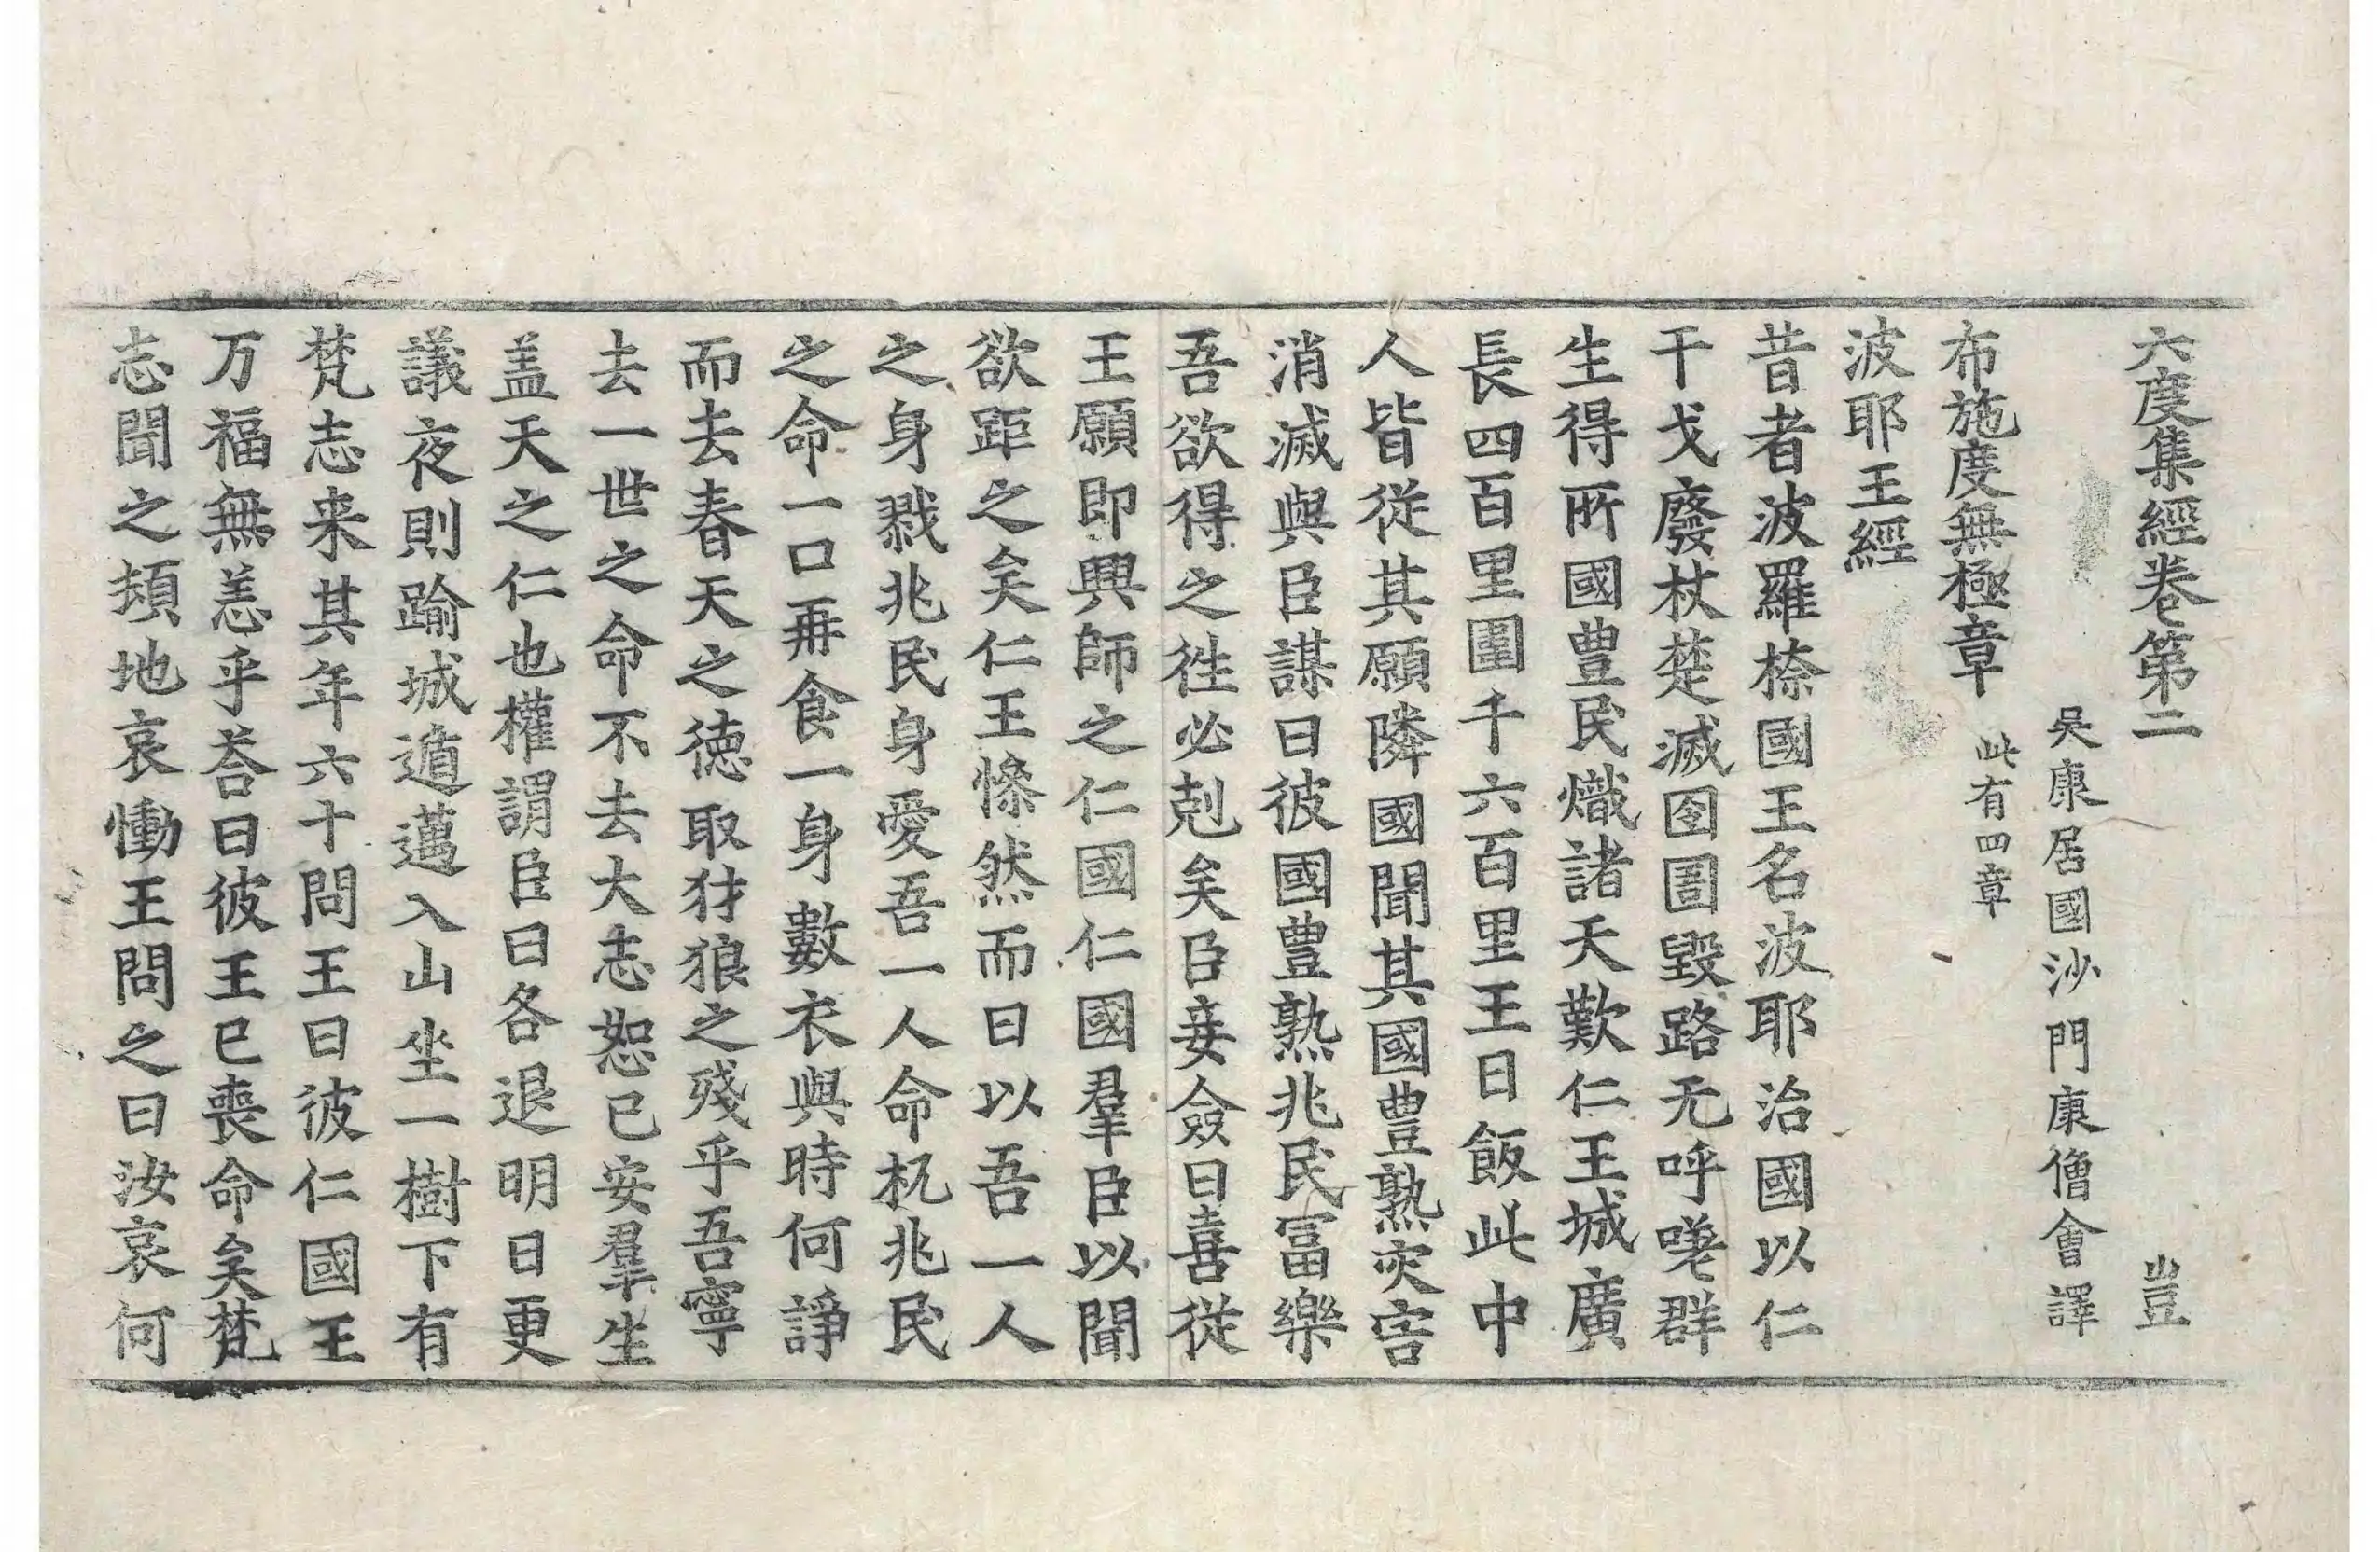 六度集經卷第二 豈
吳康居國沙門康僧會譯
布施度無極章 此有四章
波耶王經
昔者波羅㮈國王名波耶治國以仁
干戈廢杖楚滅囹圄毀路无呼嗟群
生得所國豊民熾諸天歎仁王城廣
長四百里圍千六百里王日飯此中
人皆從其願隣國聞其國豊熟灾害
消滅與臣謀曰彼國豊熟兆民冨樂
吾欲得之往必剋矣臣妾僉曰喜從
王願即興師之仁國仁國羣臣以聞
欲距之矣仁王慘然而曰以吾一人
之身戮兆民身愛吾一人命杌兆民
之命一口再食一身數衣與時何諍
而去春天之徳取犲狼之殘乎吾寧
去一世之命不去大志恕己安羣生
盖天之仁也權謂臣曰各退明日更
議夜則踰城遁邁入山坐一樹下有
梵志来其年六十問王曰彼仁國王
万福無恙乎荅曰彼王已喪命矣梵
志聞之頓地哀慟王問之曰汝哀何